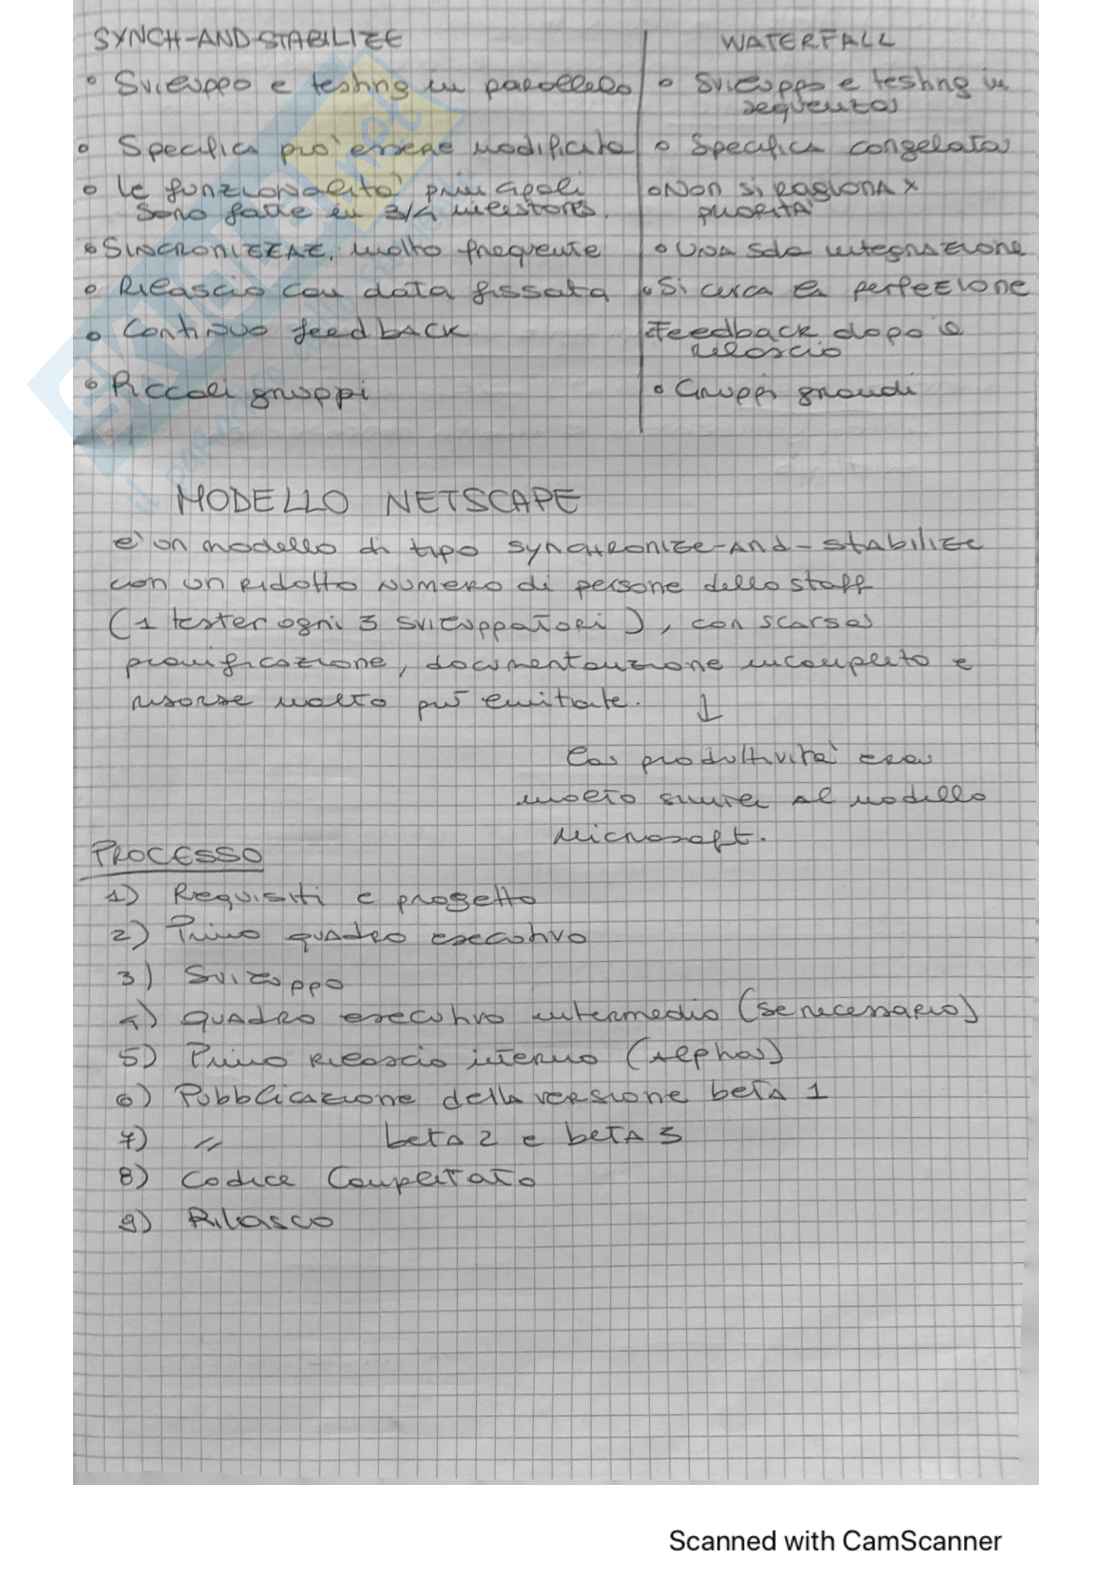 SYNCH-AND-STABILIZE
WATERFALL
° Sviluppo e testing in parallelo
° Sviluppo e testing in
sequenza
° Specifica può essere modificata
° Specifica congelata
° le funzionalità principali
sono fatte in 3/4 milestones.
° Non si ragiona x
priorità
° Sincronizzaz. molto frequente
° Una sola integrazione
° Rilascio con data fissata
° Si cerca la perfezione
° Continuo feedback
Feedback dopo il
rilascio
° Piccoli gruppi
° Gruppi grandi
MODELLO NETSCAPE
è un modello di tipo synchronize-and-stabilize
con un ridotto numero di persone dello staff
(1 tester ogni 3 sviluppatori), con scarsa
pianificazione, documentazione incompleta e
risorse molto più limitate. ↓
la produttività era
molto simile al modello
Microsoft.
PROCESSO
1) Requisiti e progetto
2) Primo quadro esecutivo
3) Sviluppo
4) Quadro esecutivo intermedio (se necessario)
5) Primo rilascio interno (alpha)
6) Pubblicazione della versione beta 1
7) // beta 2 e beta 3
8) Codice Completato
9) Rilasco
Scanned with CamScanner